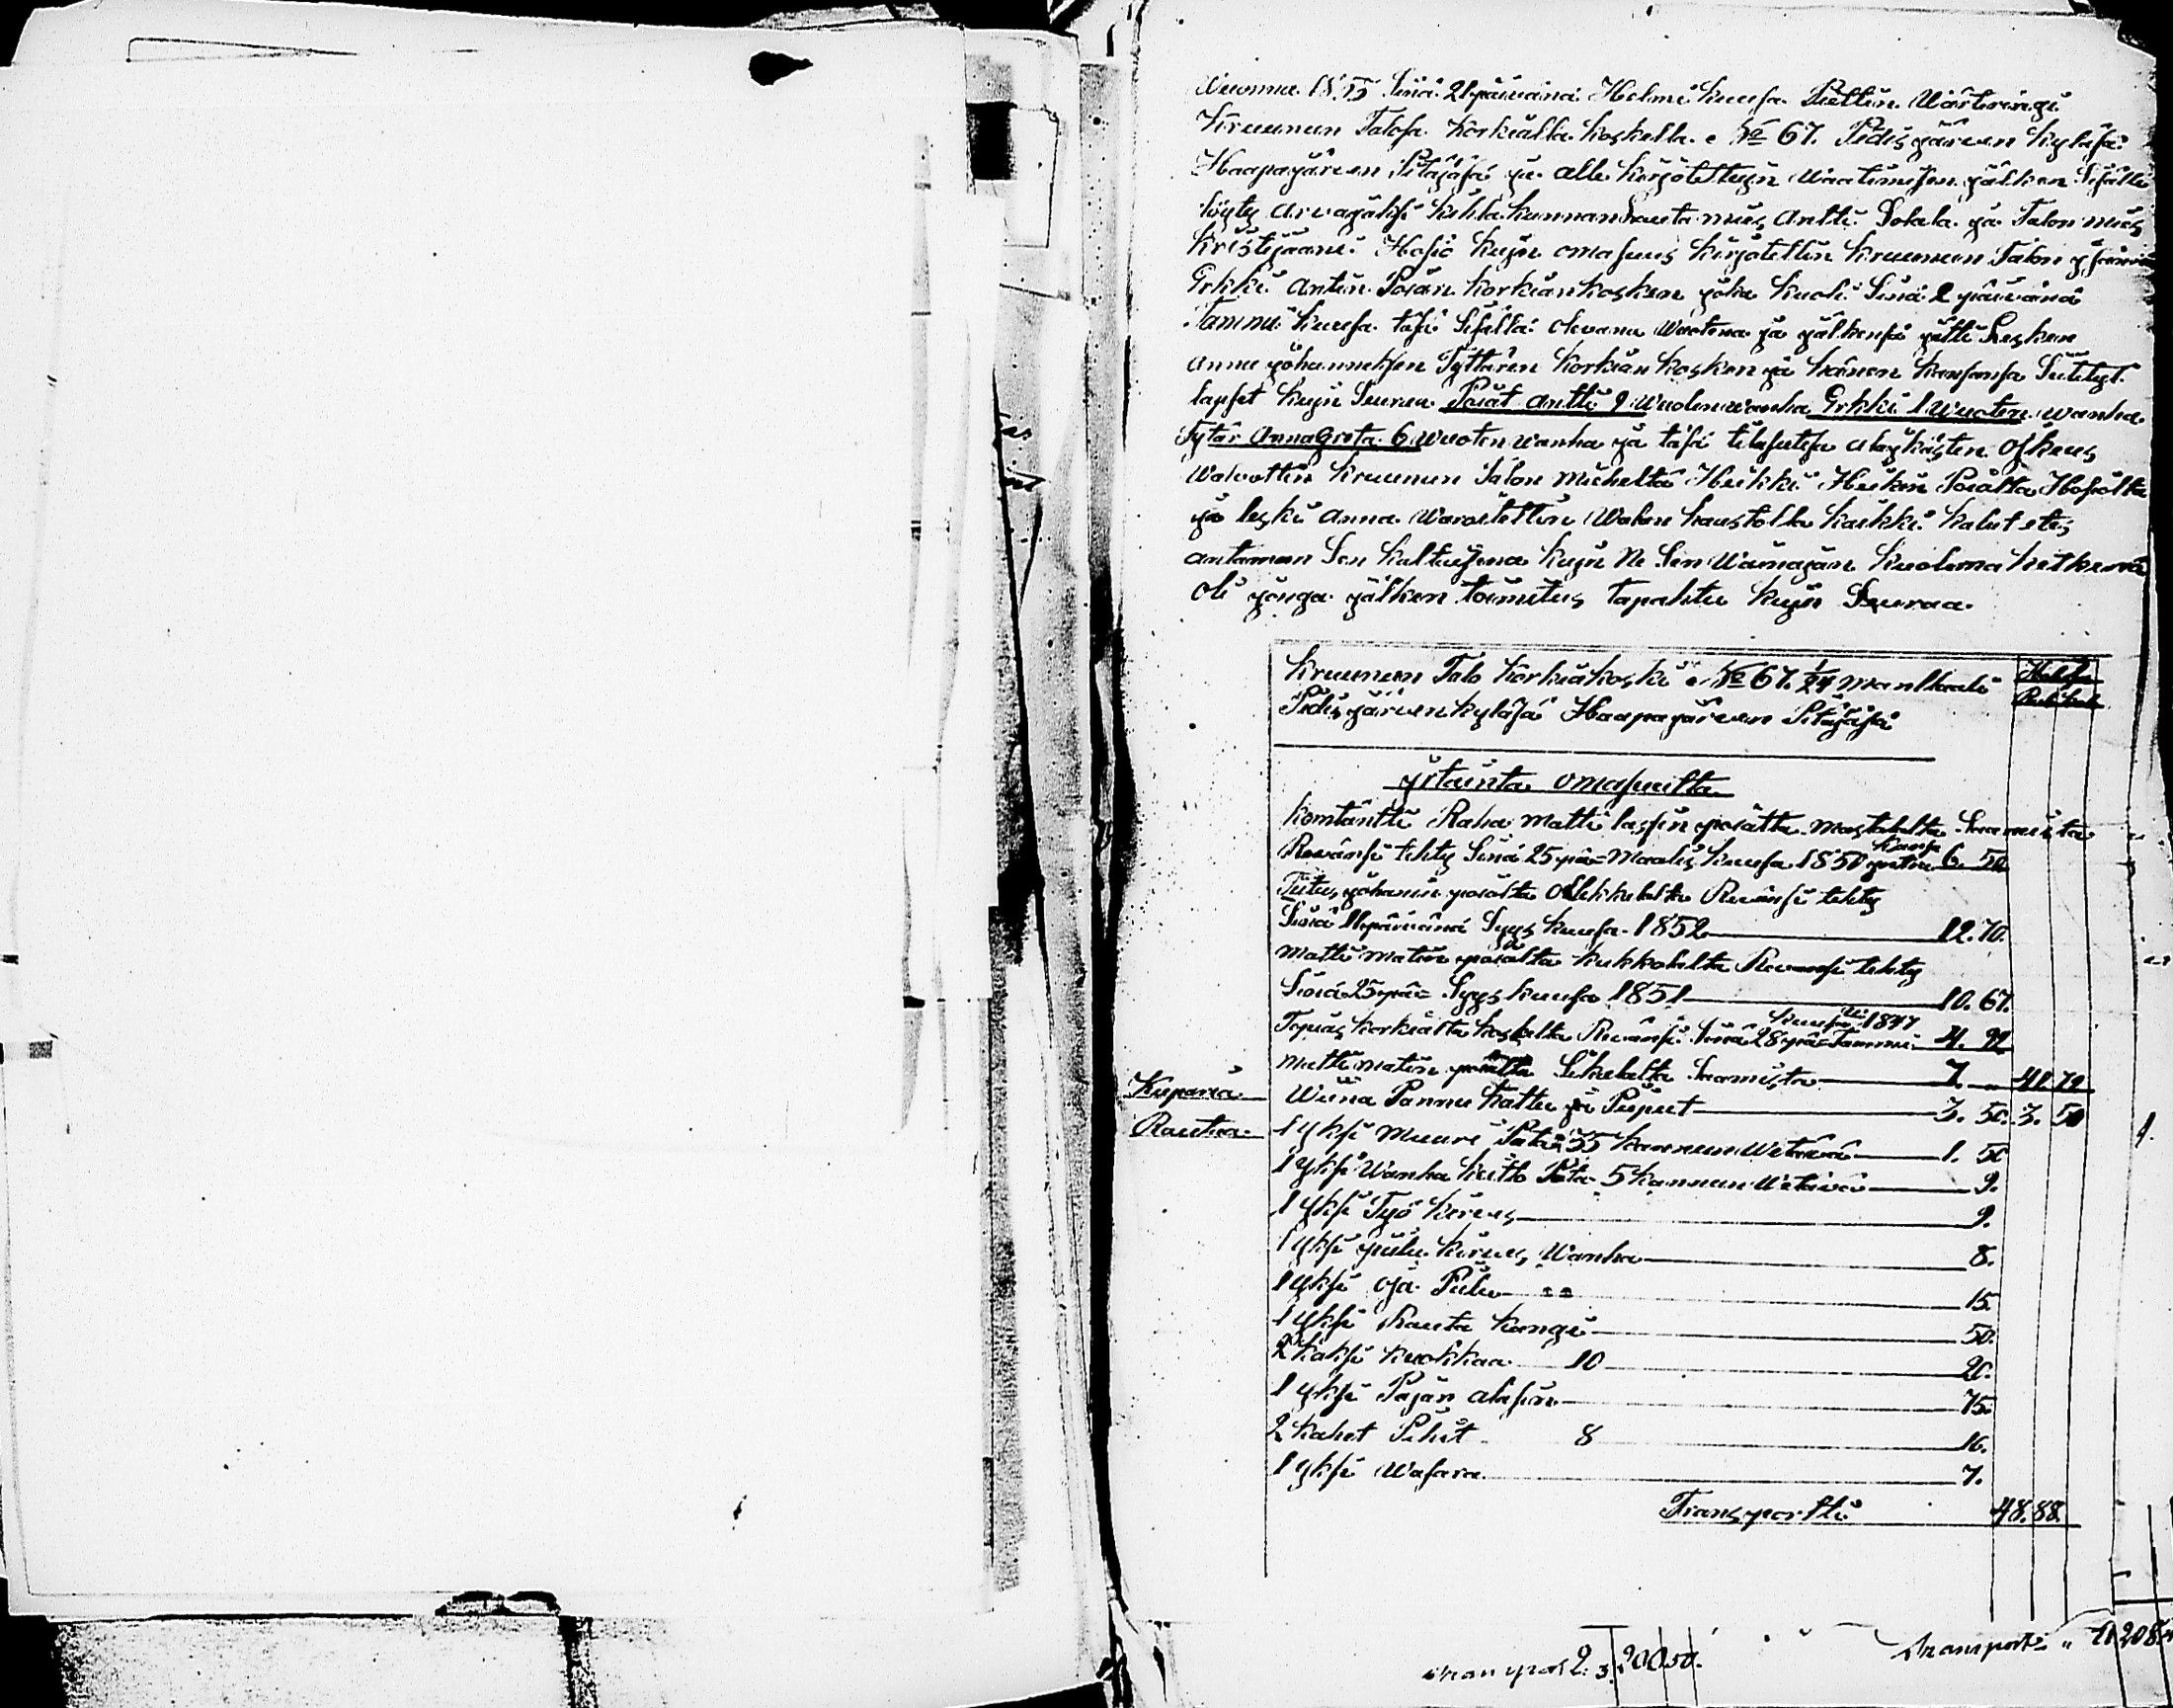 Wuonna 1855 Sinä 21 päiwänä Helmi kuusa Piettin Wärteringi
Kruunun Talosa Korkialla koskella № 67. Pidisjärwen kyläsä
Haapajärwen Pitäjäsä ja alle kirjotettujn Waatimisen jälken Sisälle
löyty arwajaksi kihlakunnan Lauta mies Antti Solala ja Talon mies
Kristijaani Hosio kujn omasuus kirjotettin Kruunun Talon isännän
Erkki Antin Poian Korkiankosken joka kuoli Sinä 2 päiwänä
Tammi kuusa täsä Sisällä olewana Wuotena ja jälkensä jätti Lesken
Anna johanneksen Tyttären Korkian kosken ja hänen kansansa Siitetyt
lapset kujn Seuraa Poiat Antti 9 Wuoten wanha Erkki 1 Wuoten wanha
Tytär Anna Greta 6 Wuoten wanha ja täsä tilasutesa alaikäisten oikeus
Walwottin Kruunun Talon Mieheltä Heikki Heikin Poialta Hosiolta
ja leski Anna Waroitettin Walan kaustolla kaikki kalut etes
antaman Sen kaltaisena kujn Ne Sen Wainajan kuolema hetkenä
oli jonga jälken toimitus tapahtu kujn Seuraa
Kruunun Talo Korkiakoski № 67. 1/24 Manttaali
Pidisjärwen kyläsä Haapajärwen Pitäjäsä
jrtainta omasuutta
Komtantti Raha Matti lassin poialta Mastokalta Saamista
Rewänsi tehty Sinä 25 pä= Maalis kuusa 1850 6. 50
Titus johanin poialta Ollikkalalta Rewänsi tehty
Sinä 11 päiwänä Syys kuusa 1852 12. 70.
Matti Matin poialta kukkolalta Rewänsi tehty
Sinä 25 pä= Syys kuusa 1851 10. 67.
Topias Korkialta koskelta Rewänsi Sinä 28 pä= Tammi kuusa 1847 4. 92
Matti Matin poialta Sikelalta Saamista 7. 41 79
Kuparia Wiina Pannu hattu ja Piiput 3. 50. 3. 50
Rautaa 1 yksi Muuri Pata 35 kannun Wetäwä 1. 50
1 yksi Wanha keitto Pata 5 kannun Wetäwä 9.
1 yksi Työ kirwes 9.
1 yksi piilu kirwes Wanha 8.
1 yksi oja Piilu 15.
1 yksi Rauta kangi 50.
2 kaksi kuokkaa 10 20.
1 yksi Pajan alasin 75.
2 kahet Pihit 8 16.
1 yksi Wasara 7.
Transportti 48. 88